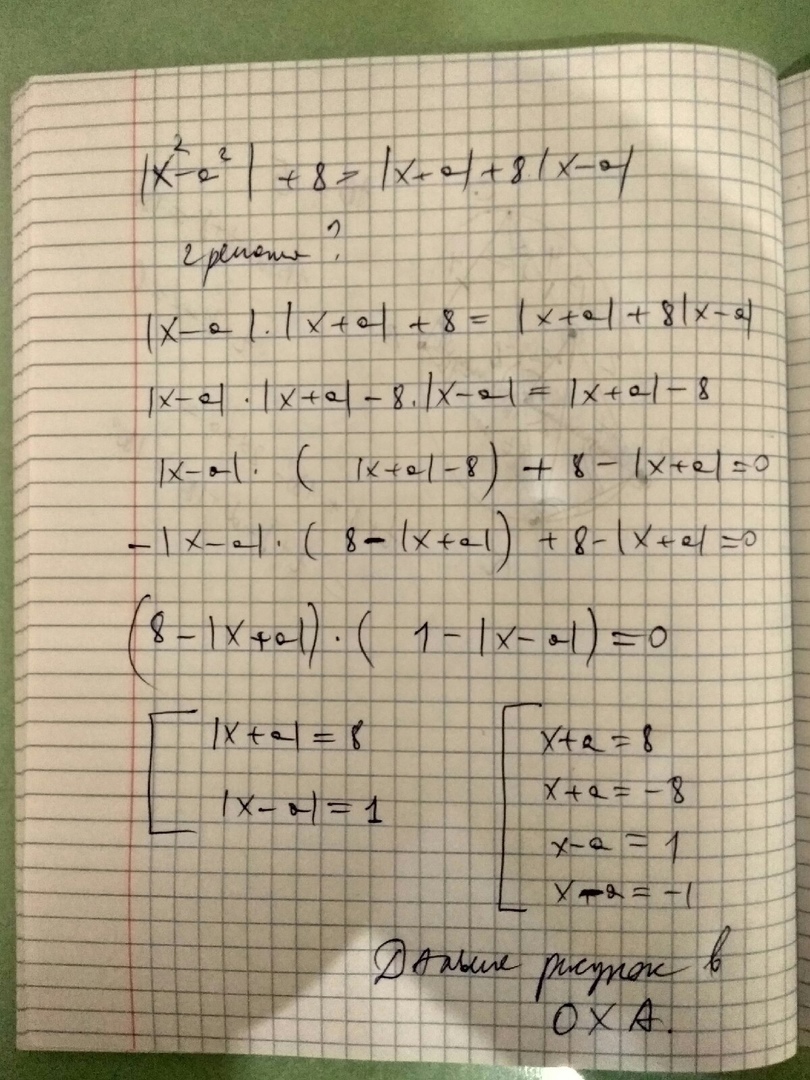 |x²-a²| + 8 = |x+a| + 8|x-a|
2 решения?
|x-a|·|x+a| + 8 = |x+a| + 8|x-a|
|x-a|·|x+a| - 8·|x-a| = |x+a| - 8
|x-a|·( |x+a| - 8) + 8 - |x+a| = 0
-|x-a|·( 8 - |x+a|) + 8 - |x+a| = 0
(8 - |x+a|)·( 1 - |x-a|) = 0
|x+a| = 8
|x-a| = 1
x+a = 8
x+a = -8
x-a = 1
x-a = -1
Дальше рисунок в
OXA.